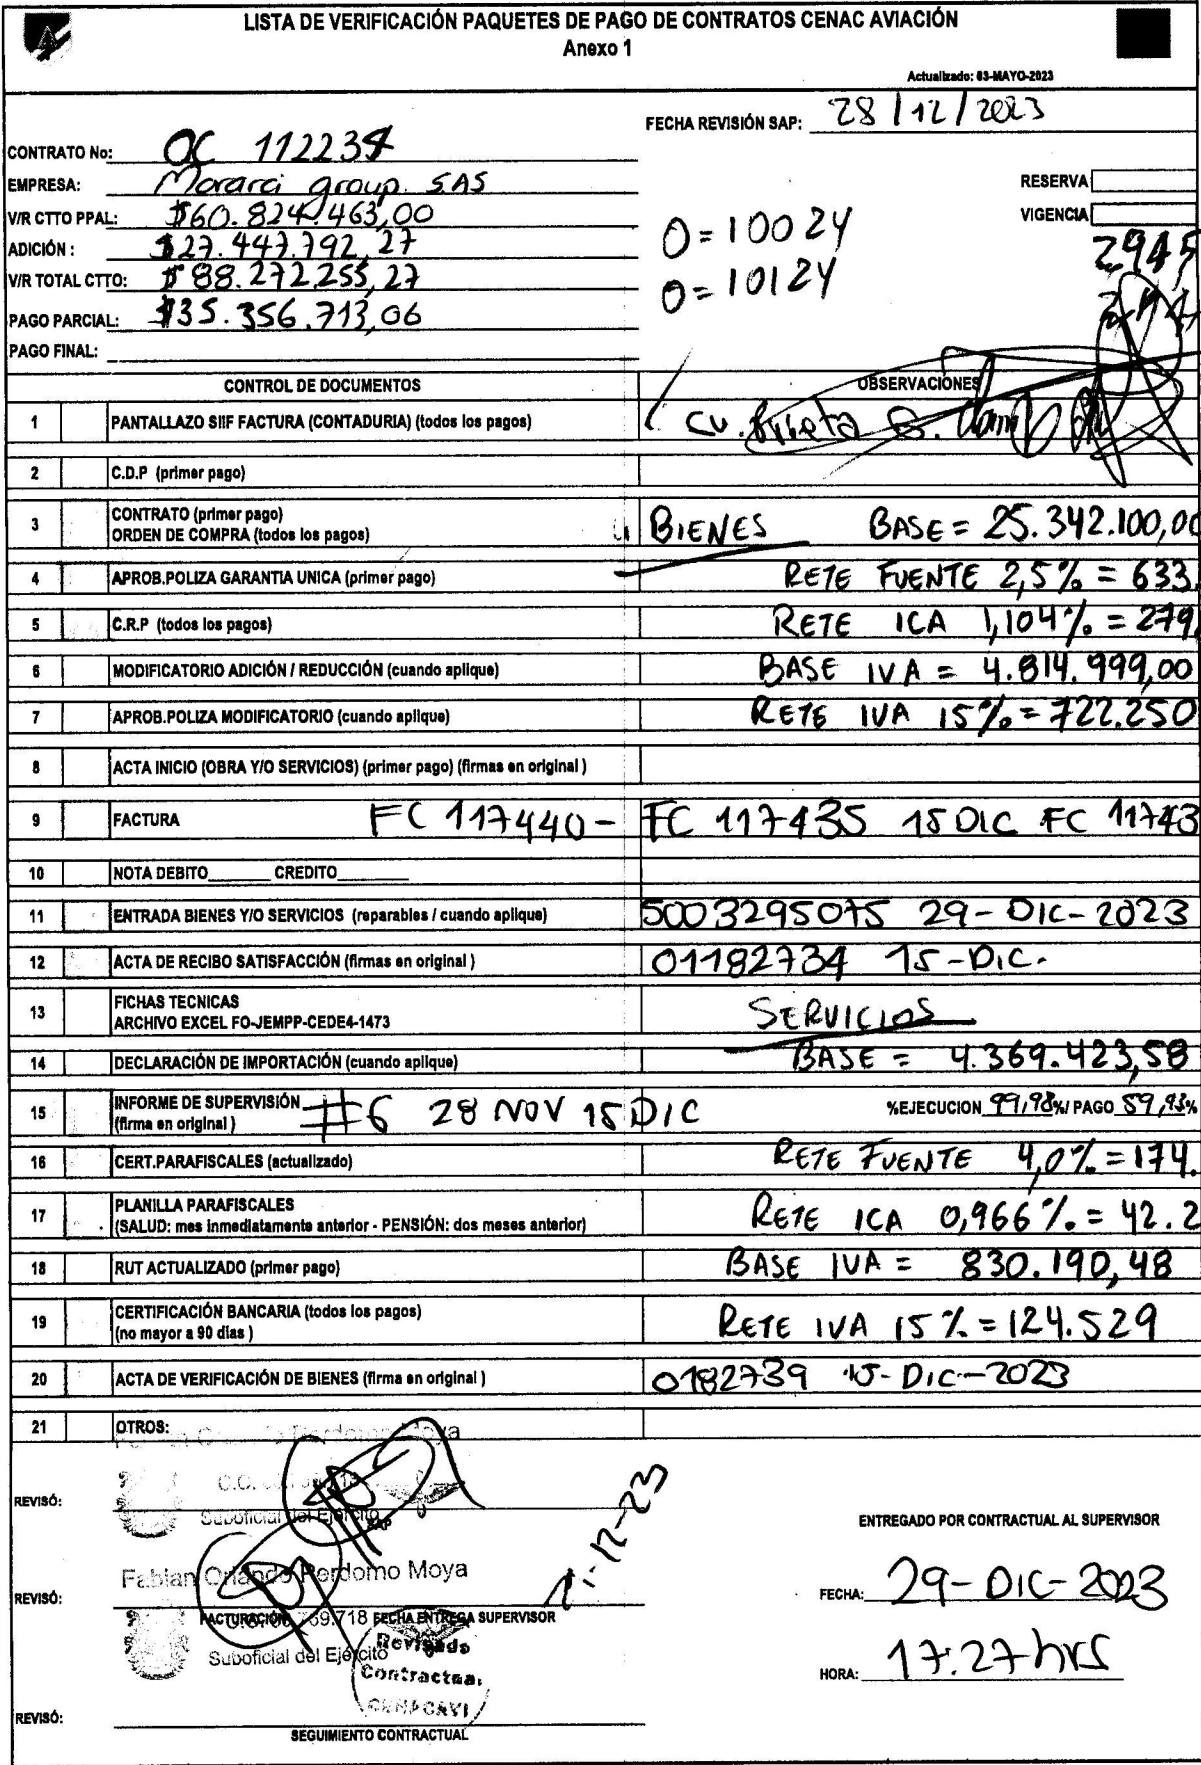 LISTA DE VERIFICACIÓN PAQUETES DE PAGO DE CONTRATOS CENAC AVIACIÓN
Anexo 1
Actualizado: 03-MAYO-2023
FECHA REVISIÓN SAP: 28/12/2023
CONTRATO No: OC 112234
EMPRESA: Morarci group. SAS
RESERVA
V/R CTTO PPAL: $60.824.463,00
VIGENCIA
O=10024
ADICIÓN : $27.447.792,27
2945
V/R TOTAL CTTO: $88.272.255,27
O=10124
PAGO PARCIAL: $35.356.713,06
PAGO FINAL:
CONTROL DE DOCUMENTOS OBSERVACIONES
1 PANTALLAZO SIIF FACTURA (CONTADURIA) (todos los pagos)
2 C.D.P (primer pago)
3 CONTRATO (primer pago)
ORDEN DE COMPRA (todos los pagos) BIENES BASE = 25.342.100,00
4 APROB.POLIZA GARANTIA UNICA (primer pago) RETE FUENTE 2,5% = 633.
5 C.R.P (todos los pagos) RETE ICA 1,104% = 279.
6 MODIFICATORIO ADICIÓN / REDUCCIÓN (cuando aplique) BASE IVA = 4.814.999,00
7 APROB.POLIZA MODIFICATORIO (cuando aplique) RETE IVA 15% = 722.250
8 ACTA INICIO (OBRA Y/O SERVICIOS) (primer pago) (firmas en original )
9 FACTURA FC 117440 - FC 117435 15 DIC FC 11743
10 NOTA DEBITO________ CREDITO________
11 ENTRADA BIENES Y/O SERVICIOS (reparables / cuando aplique) 5003295075 29-DIC-2023
12 ACTA DE RECIBO SATISFACCIÓN (firmas en original ) 01182734 15-DIC.
13 FICHAS TECNICAS
ARCHIVO EXCEL FO-JEMPP-CEDE4-1473 SERVICIOS
14 DECLARACIÓN DE IMPORTACIÓN (cuando aplique) BASE = 4.369.423,58
15 INFORME DE SUPERVISIÓN
(firma en original ) #6 28 NOV 15 DIC %EJECUCION 99,98%/ PAGO 59,93%
16 CERT.PARAFISCALES (actualizado) RETE FUENTE 4,0% = 174.
17 PLANILLA PARAFISCALES
(SALUD: mes inmediatamente anterior - PENSIÓN: dos meses anterior) RETE ICA 0,966% = 42.2
18 RUT ACTUALIZADO (primer pago) BASE IVA = 830.190,48
19 CERTIFICACIÓN BANCARIA (todos los pagos)
(no mayor a 90 dias ) RETE IVA 15% = 124.529
20 ACTA DE VERIFICACIÓN DE BIENES (firma en original ) 0182739 15-DIC-2023
21 OTROS:
Perdomo Moya
C.C.
REVISÓ:
Suboficial del Ejército
SAP
ENTREGADO POR CONTRACTUAL AL SUPERVISOR
Fabian Orlando Perdomo Moya
REVISÓ:
FECHA: 29-DIC-2023
FACTURACIÓN FECHA ENTREGA SUPERVISOR
Suboficial del Ejército
Revisado
Contractual
CENACAVI
HORA: 17:27 hrs
REVISÓ:
SEGUIMIENTO CONTRACTUAL